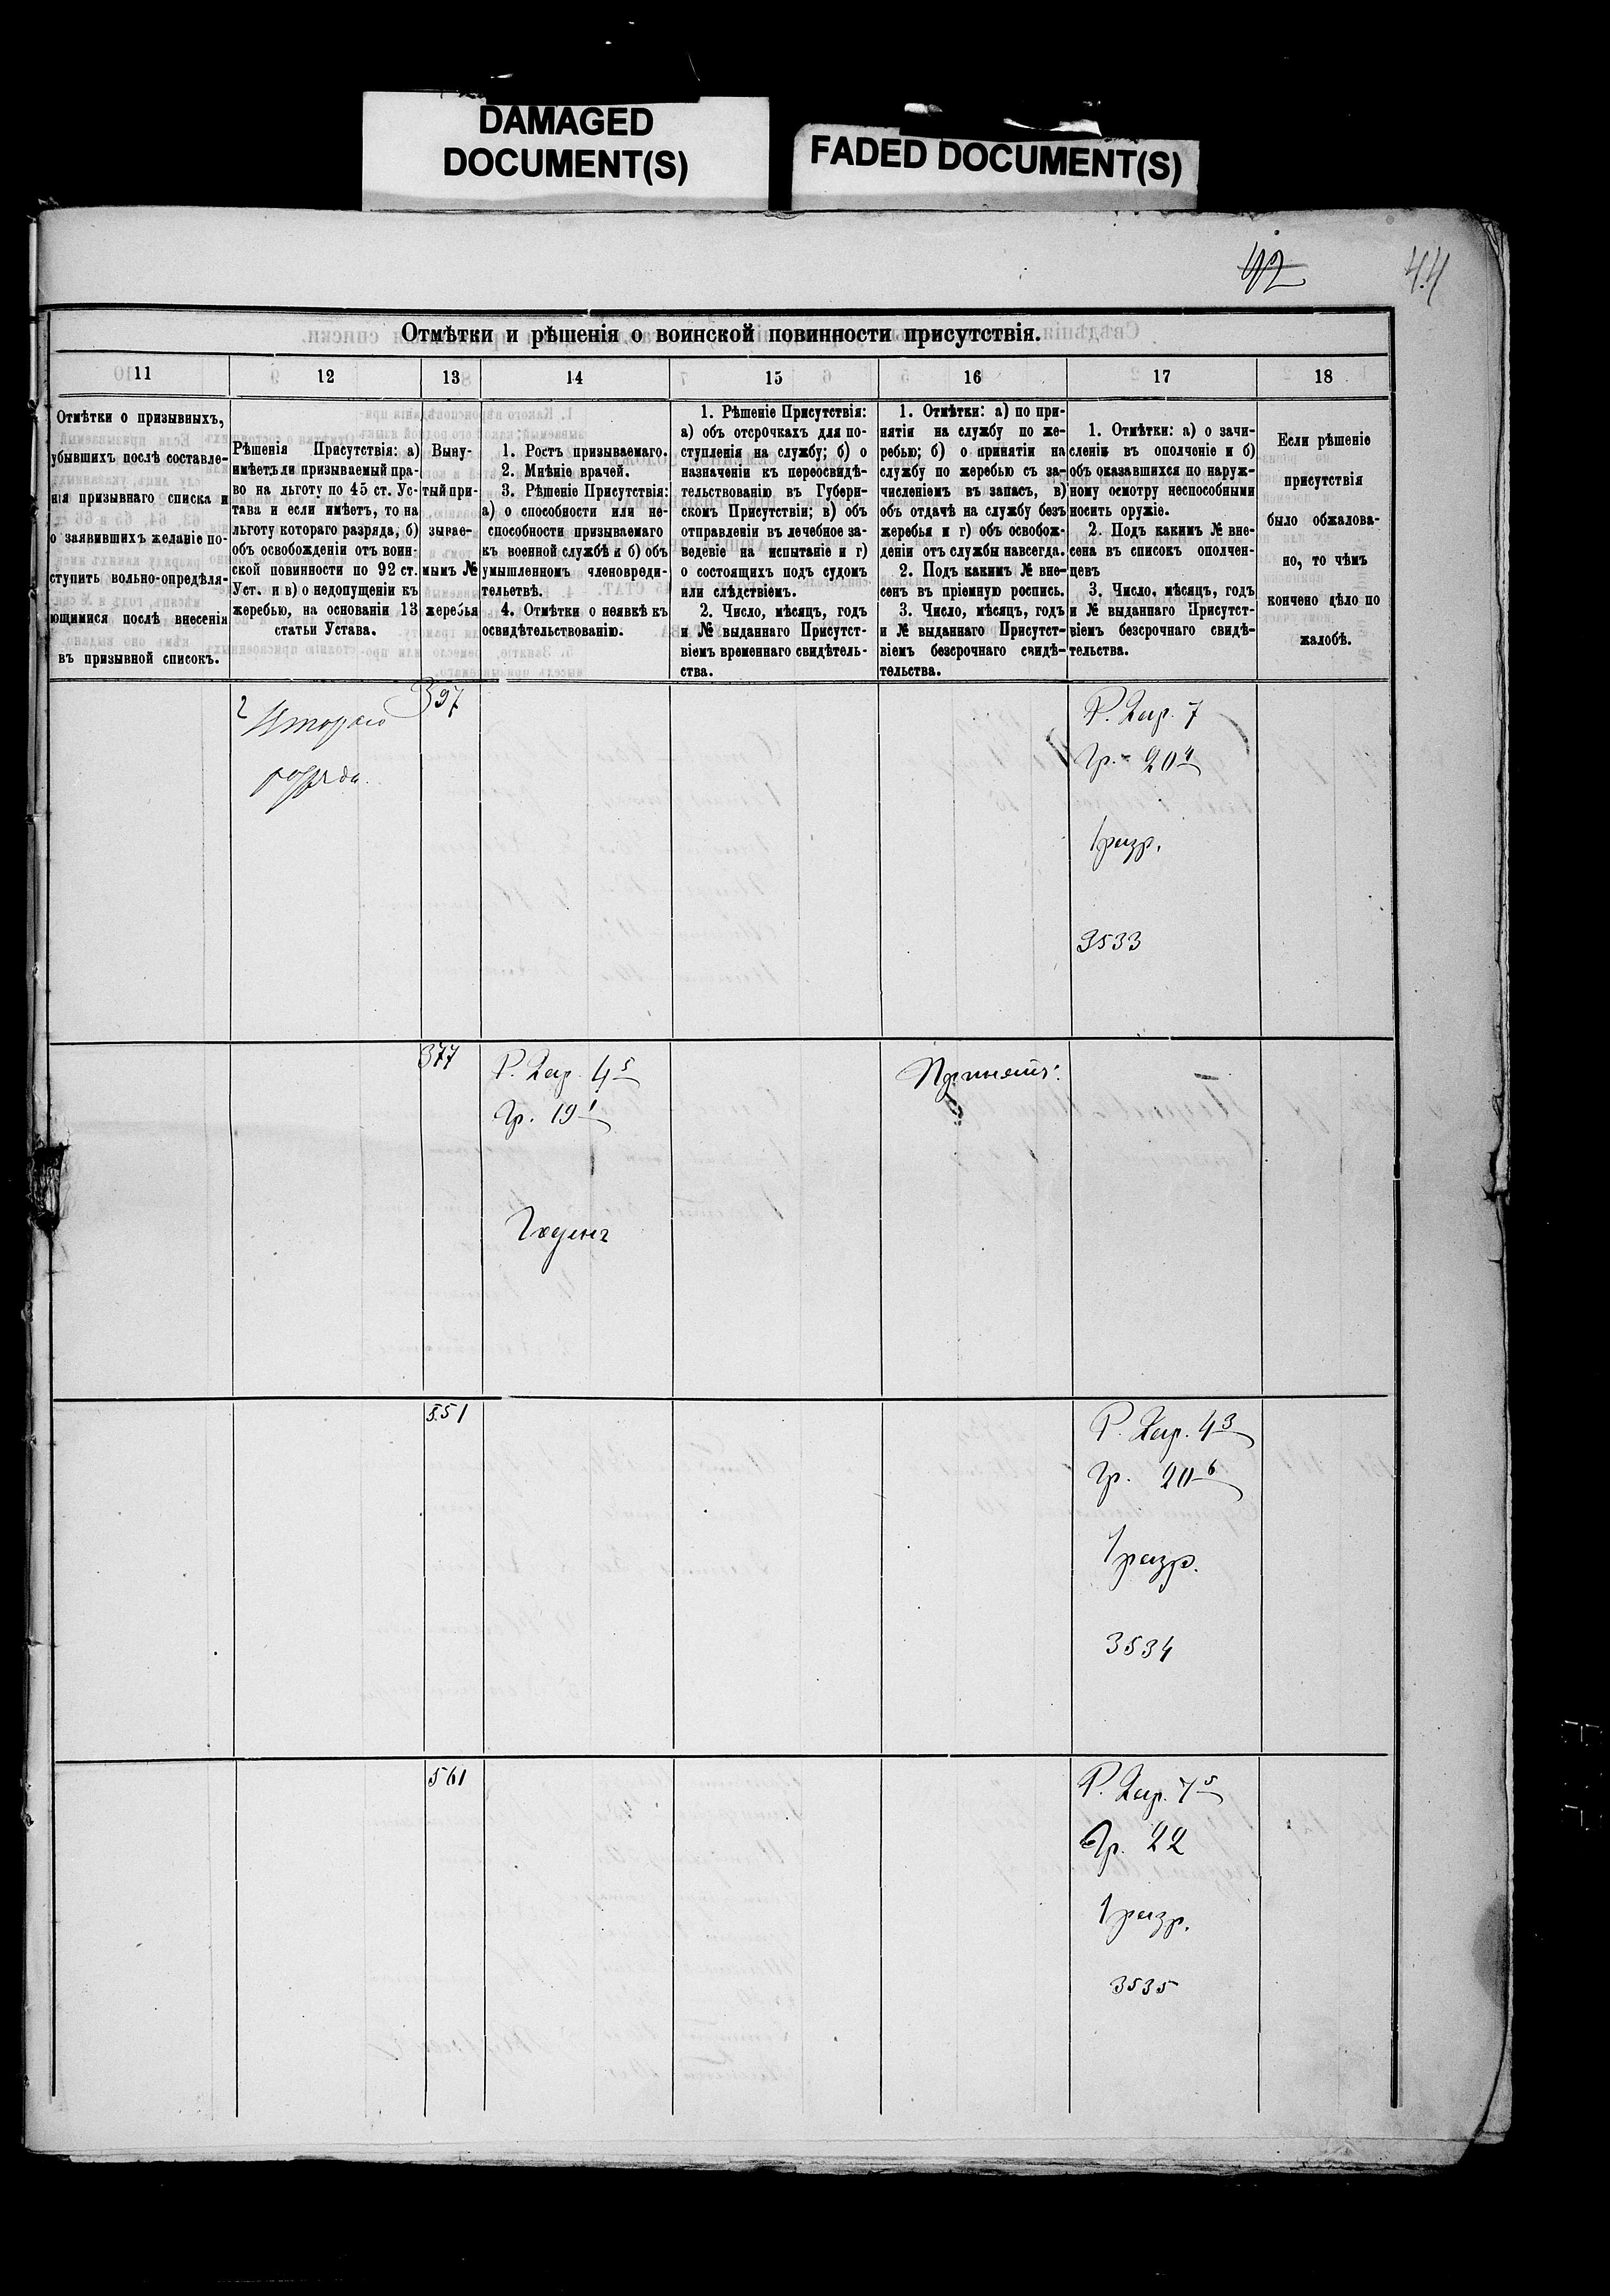 DAMAGED
DOCUMENT(S)
FADED DOCUMENT(S)
42
44
Отмѣтки и рѣшенія о воинской повинности присутствія.
11
12
13
14
15
16
17
18
Отмѣтки о призывныхъ,
убывшихъ послѣ составле-
нія призывнаго списка и
о заявившихъ желаніе по-
ступить вольно-опредѣля-
ющимися послѣ внесенія
въ призывной списокъ.
Рѣшенія Присутствія: а)
имѣетъ ли призываемый пра-
во на льготу по 45 ст. Ус-
тава и если имѣетъ, то на
льготу котораго разряда, б)
объ освобожденіи отъ воин-
ской повинности по 92 ст.
Уст. и в) о недопущеніи къ
жеребью, на основаніи 13
статьи Устава.
Выну-
тый при-
зывае-
мымъ №
жеребья
1. Ростъ призываемаго.
2. Мнѣніе врачей.
3. Рѣшеніе Присутствія:
а) о способности или не-
способности призываемаго
къ военной службѣ и б) объ
умышленномъ членовреди-
тельетвѣ.
4. Отмѣтки о неявкѣ къ
освидѣтельствованію.
1. Рѣшеніе Присутствія:
а) объ отсрочкахъ для по-
ступленія на службу; б) о
назначеніи къ переосвидѣ-
тельствованію въ Губерн-
скомъ Присутствіи; в) объ
отправленіи въ лечебное за-
веденіе на испытаніе и г)
о состоящихъ подъ судомъ
или слѣдствіемъ.
2. Число, мѣсяцъ, годъ
и № выданнаго Присутст-
віемъ временнаго свидѣтель-
ства.
1. Отмѣтки: а) по при-
нятія на службу по же-
ребью; б) о принятіи на
службу по жеребью съ за-
численіемъ въ запасъ, в)
объ отдачѣ на службу безъ
жеребья и г) объ освобож-
деніи отъ службы навсегда.
2. Подъ какимъ № вне-
сенъ въ пріемную роспись.
3. Число, мѣсяцъ, годъ
и № выданнаго Присутст-
віемъ безсрочнаго свидѣ-
тельства.
1. Отмѣтки: а) о зачи-
сленіи въ ополченіе и б)
объ оказавшихся по наруж-
ному осмотру неспособными
носить оружіе.
2. Подъ какимъ № вне-
сена въ списокъ ополчен-
цевъ
3. Число, мѣсяцъ, годъ
и № выданнаго Присутст-
віемъ безсрочнаго свидѣ-
тельства.
Если рѣшеніе
присутствія
было обжалова-
но, то чѣмъ
кончено дѣло по
жалобѣ.
2
Втораго
разряда.
397
Р. 2 ар. 7
Гр. 20 4
1 разр.
3533
377
Р. 2 ар. 4 5
Гр. 19 1
Годенъ
Принятъ.
551
Р. 2 ар. 4 3
Гр. 20 6
1 разр.
3534
561
Р. 2 ар. 7 5
Гр. 22
1 разр.
3535